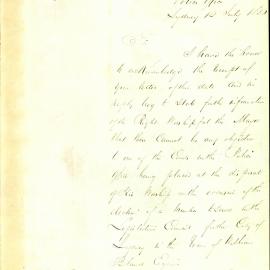 Police Office
Sydney 12 July 18
Sir
I have the honor
to acknowledge the receipt of
your letter of this date and in
reply beg to state for the information
of the Right Worshipful the Mayor
that there cannot be any objection
to one of the Courts in the Police
Office being placed at the disposal
of His Worship on the occasion of the
election of a Member to serve in the
Legislative Council for the City of
Sydney in the room of William
Bland Esquire